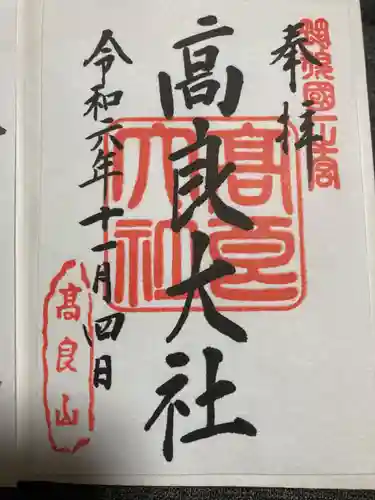 筑後國一之宮
奉拝
高良大社
高良大社
令和六年十一月四日
高良山